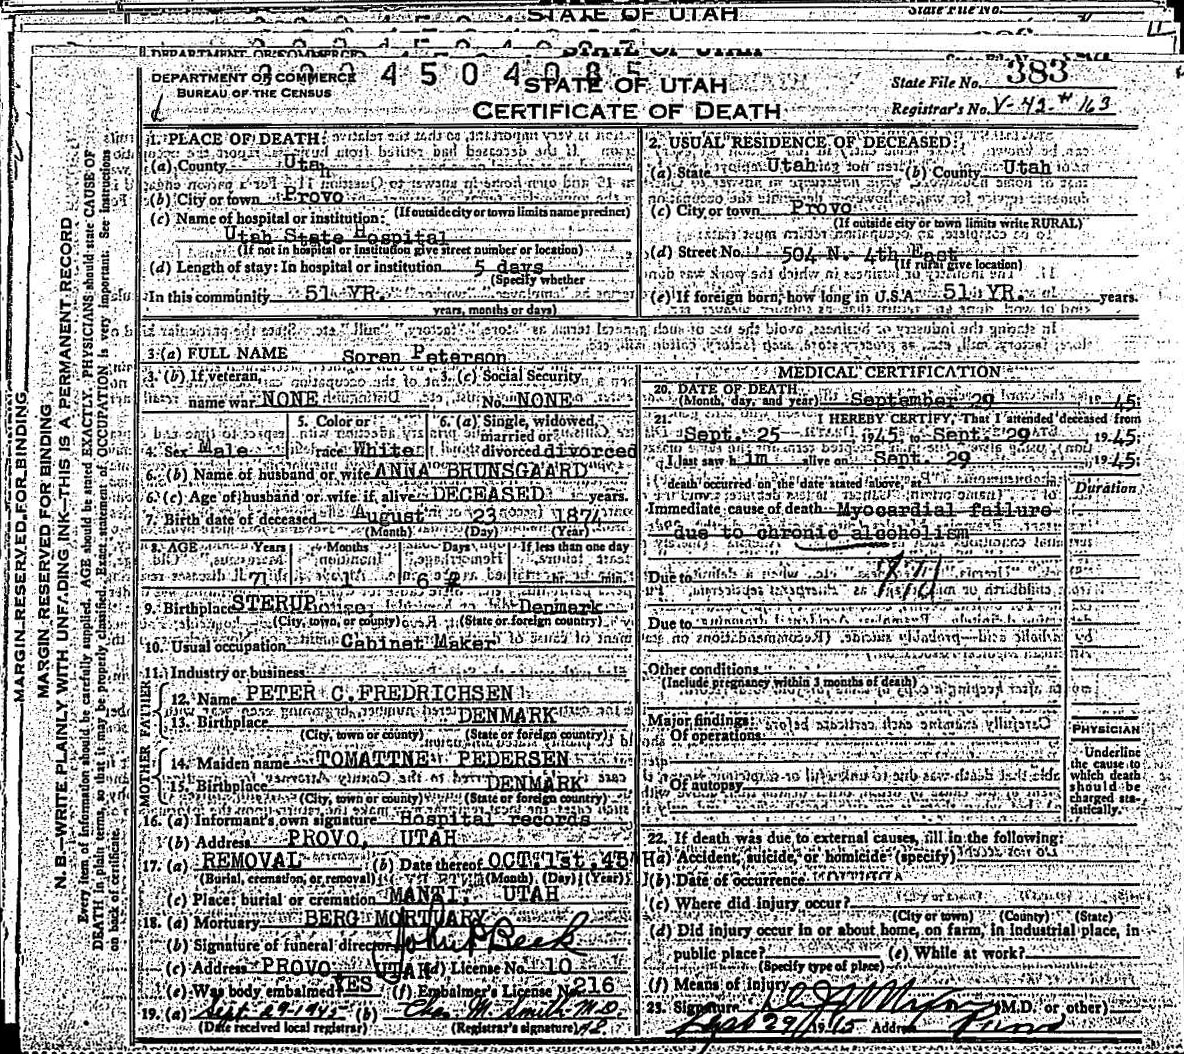 STATE OF UTAH
State File No.
DEPARTMENT OF COMMERCE
BUREAU OF THE CENSUS
STATE OF UTAH
CERTIFICATE OF DEATH
State File No. 383
Registrar's No. V-42-# 163
MARGIN RESERVED FOR BINDING
MARGIN RESERVED FOR BINDING
N. B.—WRITE PLAINLY WITH UNFADING INK—THIS IS A PERMANENT RECORD
Every item of information should be carefully supplied. AGE should be stated EXACTLY. PHYSICIANS should state CAUSE OF
DEATH in plain terms, so that it may be properly classified. Exact statement of OCCUPATION is very important. See instructions
on back of certificate.
1. PLACE OF DEATH:
(a) County Utah
(b) City or town Provo
(If outside city or town limits name precinct)
(c) Name of hospital or institution:
Utah State Hospital
(If not in hospital or institution give street number or location)
(d) Length of stay: In hospital or institution 5 days
(Specify whether
In this community 51 YR.
years, months or days)
2. USUAL RESIDENCE OF DECEASED:
(a) State Utah (b) County Utah
(c) City or town Provo
(If outside city or town limits write RURAL)
(d) Street No. 504 N. 4th East
(If rural give location)
(e) If foreign born, how long in U.S.A. 51 YR. years.
3. (a) FULL NAME Soren Peterson
3. (b) If veteran, name war NONE
3. (c) Social Security No. NONE
4. Sex Male
5. Color or race White
6. (a) Single, widowed, married or divorced divorced
6. (b) Name of husband or wife ANNA BRUNSGAARD
6. (c) Age of husband or wife if alive DECEASED years.
7. Birth date of deceased August 23 1874
(Month) (Day) (Year)
8. AGE Years Months Days If less than one day
71 1 6 hr. min.
9. Birthplace STERUP Denmark
(City, town, or county) (State or foreign country)
10. Usual occupation Cabinet Maker
11. Industry or business
FATHER
12. Name PETER C. FREDRICHSEN
13. Birthplace DENMARK
(City, town or county) (State or foreign country)
MOTHER
14. Maiden name TOMATINE PEDERSEN
15. Birthplace DENMARK
(City, town or county) (State or foreign country)
16. (a) Informant's own signature Hospital records
(b) Address PROVO, UTAH
17. (a) REMOVAL (b) Date thereof OCT. 1st, 45
(Burial, cremation, or removal) (Month) (Day) (Year)
(c) Place: burial or cremation MANTI, UTAH
18. (a) Mortuary BERG MORTUARY
(b) Signature of funeral director John P Beck
(c) Address PROVO UTAH (d) License No. 10
(e) Was body embalmed YES (f) Embalmer's License No. 216
19. (a) Sept 29-1945 (b) Chas. M. Smith M.D.
(Date received local registrar) (Registrar's signature)
MEDICAL CERTIFICATION
20. DATE OF DEATH
(Month, day, and year) September 29 19 45
21. I HEREBY CERTIFY, That I attended deceased from
Sept. 25 1945 to Sept. 29 19 45
I last saw him alive on Sept. 29 19 45
death occurred on the date stated above, at
Duration
Immediate cause of death Myocardial failure
due to chronic alcoholism
Due to
Due to
Other conditions
(Include pregnancy within 3 months of death)
Major findings:
Of operations
Of autopsy
PHYSICIAN
Underline
the cause to
which death
should be
charged sta-
tistically.
22. If death was due to external causes, fill in the following:
(a) Accident, suicide, or homicide (specify)
(b) Date of occurrence
(c) Where did injury occur?
(City or town) (County) (State)
(d) Did injury occur in or about home, on farm, in industrial place, in
public place? (e) While at work?
(Specify type of place)
(f) Means of injury
23. Signature (M.D. or other)
Sept 29/1945 Address Provo